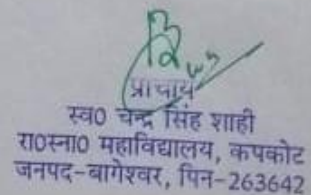 प्राचार्य
स्व0 चन्द्र सिंह शाही
रा0स्ना0 महाविद्यालय, कपकोट
जनपद-बागेश्वर, पिन-263642